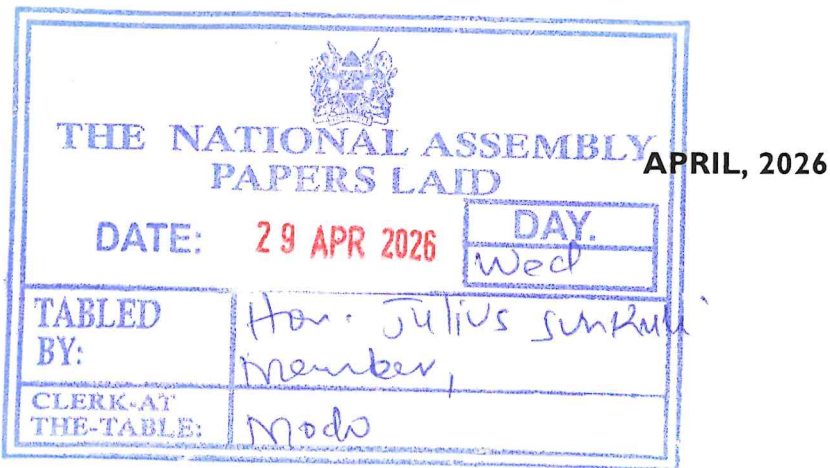 THE NATIONAL ASSEMBLY
PAPERS LAID
APRIL, 2026
DATE: 29 APR 2026
DAY.
Wed
TABLED BY:
Hon. Julius Sunkuli
Member,
CLERK-AT
THE-TABLE:
Modo